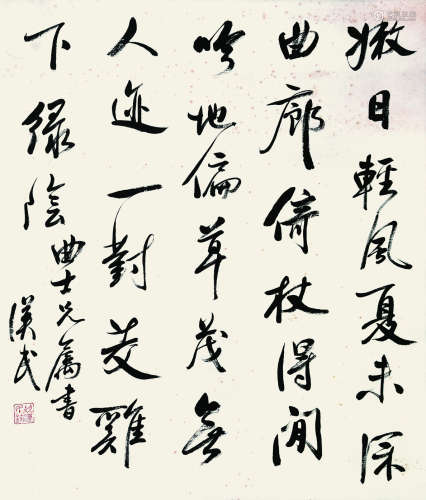 嫩日輕風夏未深
曲廊倚杖得閒
吟地偏草茂無
人迹一對茭雞
下綠陰
曲士兄屬書
漢民